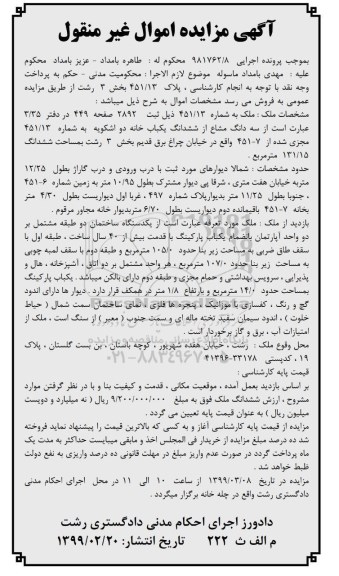 آگهی مزایده اموال غیر منقول
بموجب پرونده اجرایی ۹۸۱۷۶۲/۸ محکوم له : طاهره بامداد - عزیز بامداد محکوم
علیه : مهدی بامداد ماسوله موضوع لازم الاجرا : محکومیت مدنی - حکم به پرداخت
وجه نقد با توجه به انجام کارشناسی ، پلاک ۴۵۱/۱۳ بخش ۳ رشت از طریق مزایده
عمومی به فروش می رسد مشخصات اموال به شرح ذیل میباشد :
مشخصات ملک : ملک به شماره ۴۵۱/۱۳ ذیل ثبت ۲۸۹۲ صفحه ۴۴۹ در دفتر ۳/۳۵
عبارت است از سه دانگ مشاع از ششدانگ یکباب خانه دو اشکوبه به شماره ۴۵۱/۱۳
مجزی شده از ۷-۴۵۱ واقع در خیابان چراغ برق قدیم بخش ۳ رشت بمساحت ششدانگ
۱۳۱/۱۵ مترمربع .
حدود مشخصات : شمالا دیوارهای مورد ثبت با درب ورودی و درب گاراژ بطول ۱۲/۲۵
متربه خیابان هفت متری ، شرقا پی دیوار مشترک بطول ۱۰/۹۵ متر به زمین شماره ۶-۴۵۱
، جنوبا بطول ۱۱/۲۵ متر بدیوارپلاک شماره ۴۹۷ ، غربا اول دیواریست بطول ۴/۳۰ متر
بخانه ۷-۴۵۱ باقیمانده دوم دیواریست بطول ۶/۷۰ متربدیوار خانه مجاور مرقوم .
بازدید از ملک : ملک مورد تعرفه عبارت است از یکدستگاه ساختمان دو طبقه مشتمل بر
دو واحد آپارتمان بانضمام یکباب پارکینگ با قدمت بیش از ۴۰ سال ساخت ، طبقه اول با
سقف طاق ضربی به مساحت زیر بنا حدود ۱۰۵/۰ مترمربع و طبقه دوم با سقف لمبه چوبی
به مساحت زیر بنا حدود ۱۰۷/۰ مترمربع ، هر واحد مشتمل بر دو اتاق ، آشپزخانه ، هال و
پذیرایی ، سرویس بهداشتی و حمام مجزی و طبقه دوم دارای بالکن میباشد . یکباب پارکینگ
بمساحت حدود ۱۴/۰ مترمربع و بارتفاع ۱/۸ متر در همکف قرار دارد . دیوار ها دارای اندود
گچ و رنگ ، کفسازی با موزائیک ، پنجره ها فلزی ، نمای ساختمان قسمت شمال ( حیاط
خلوت ) ، اندود سیمان سفید تخته ماله ای و سمت جنوب ( معبر ) از سنگ است ، ملک از
امتیازات آب ، برق و گاز برخوردار است .
محل وقوع ملک : رشت ، خیابان هفده شهریور ، کوچه باستان ، بن بست گلستان ، پلاک
۱۹ ، کدپستی ۳۳۱۷۸-۴۱۳۹۶
قیمت پایه کارشناسی :
بر اساس بازدید بعمل آمده ، موقعیت مکانی ، قدمت و کیفیت بنا و با در نظر گرفتن موارد
مشروح ، ارزش ششدانگ ملک فوق به مبلغ ۹/۲۰۰/۰۰۰/۰۰۰ ریال ( نه میلیارد و دویست
میلیون ریال ) به عنوان قیمت پایه تعیین می گردد .
مزایده از قیمت پایه کارشناسی آغاز و به کسی که بالاترین قیمت را پیشنهاد نماید فروخته
شد ده درصد مبلغ مزایده از خریدار فی المجلس اخذ و مابقی میبایست حداکثر به مدت یک
ماه پرداخت گردد در صورت عدم واریز مبلغ در مهلت قانونی ده درصد واریزی به نفع دولت
ظبط خواهد شد .
مزایده در تاریخ ۱۳۹۹/۰۳/۰۸ از ساعت ۱۰ الی ۱۱ در محل اجرای احکام مدنی
دادگستری رشت واقع در چله خانه برگزار میگردد .
دادورز اجرای احکام مدنی دادگستری رشت
م الف ث ۲۲۲ تاریخ انتشار: ۱۳۹۹/۰۲/۲۰